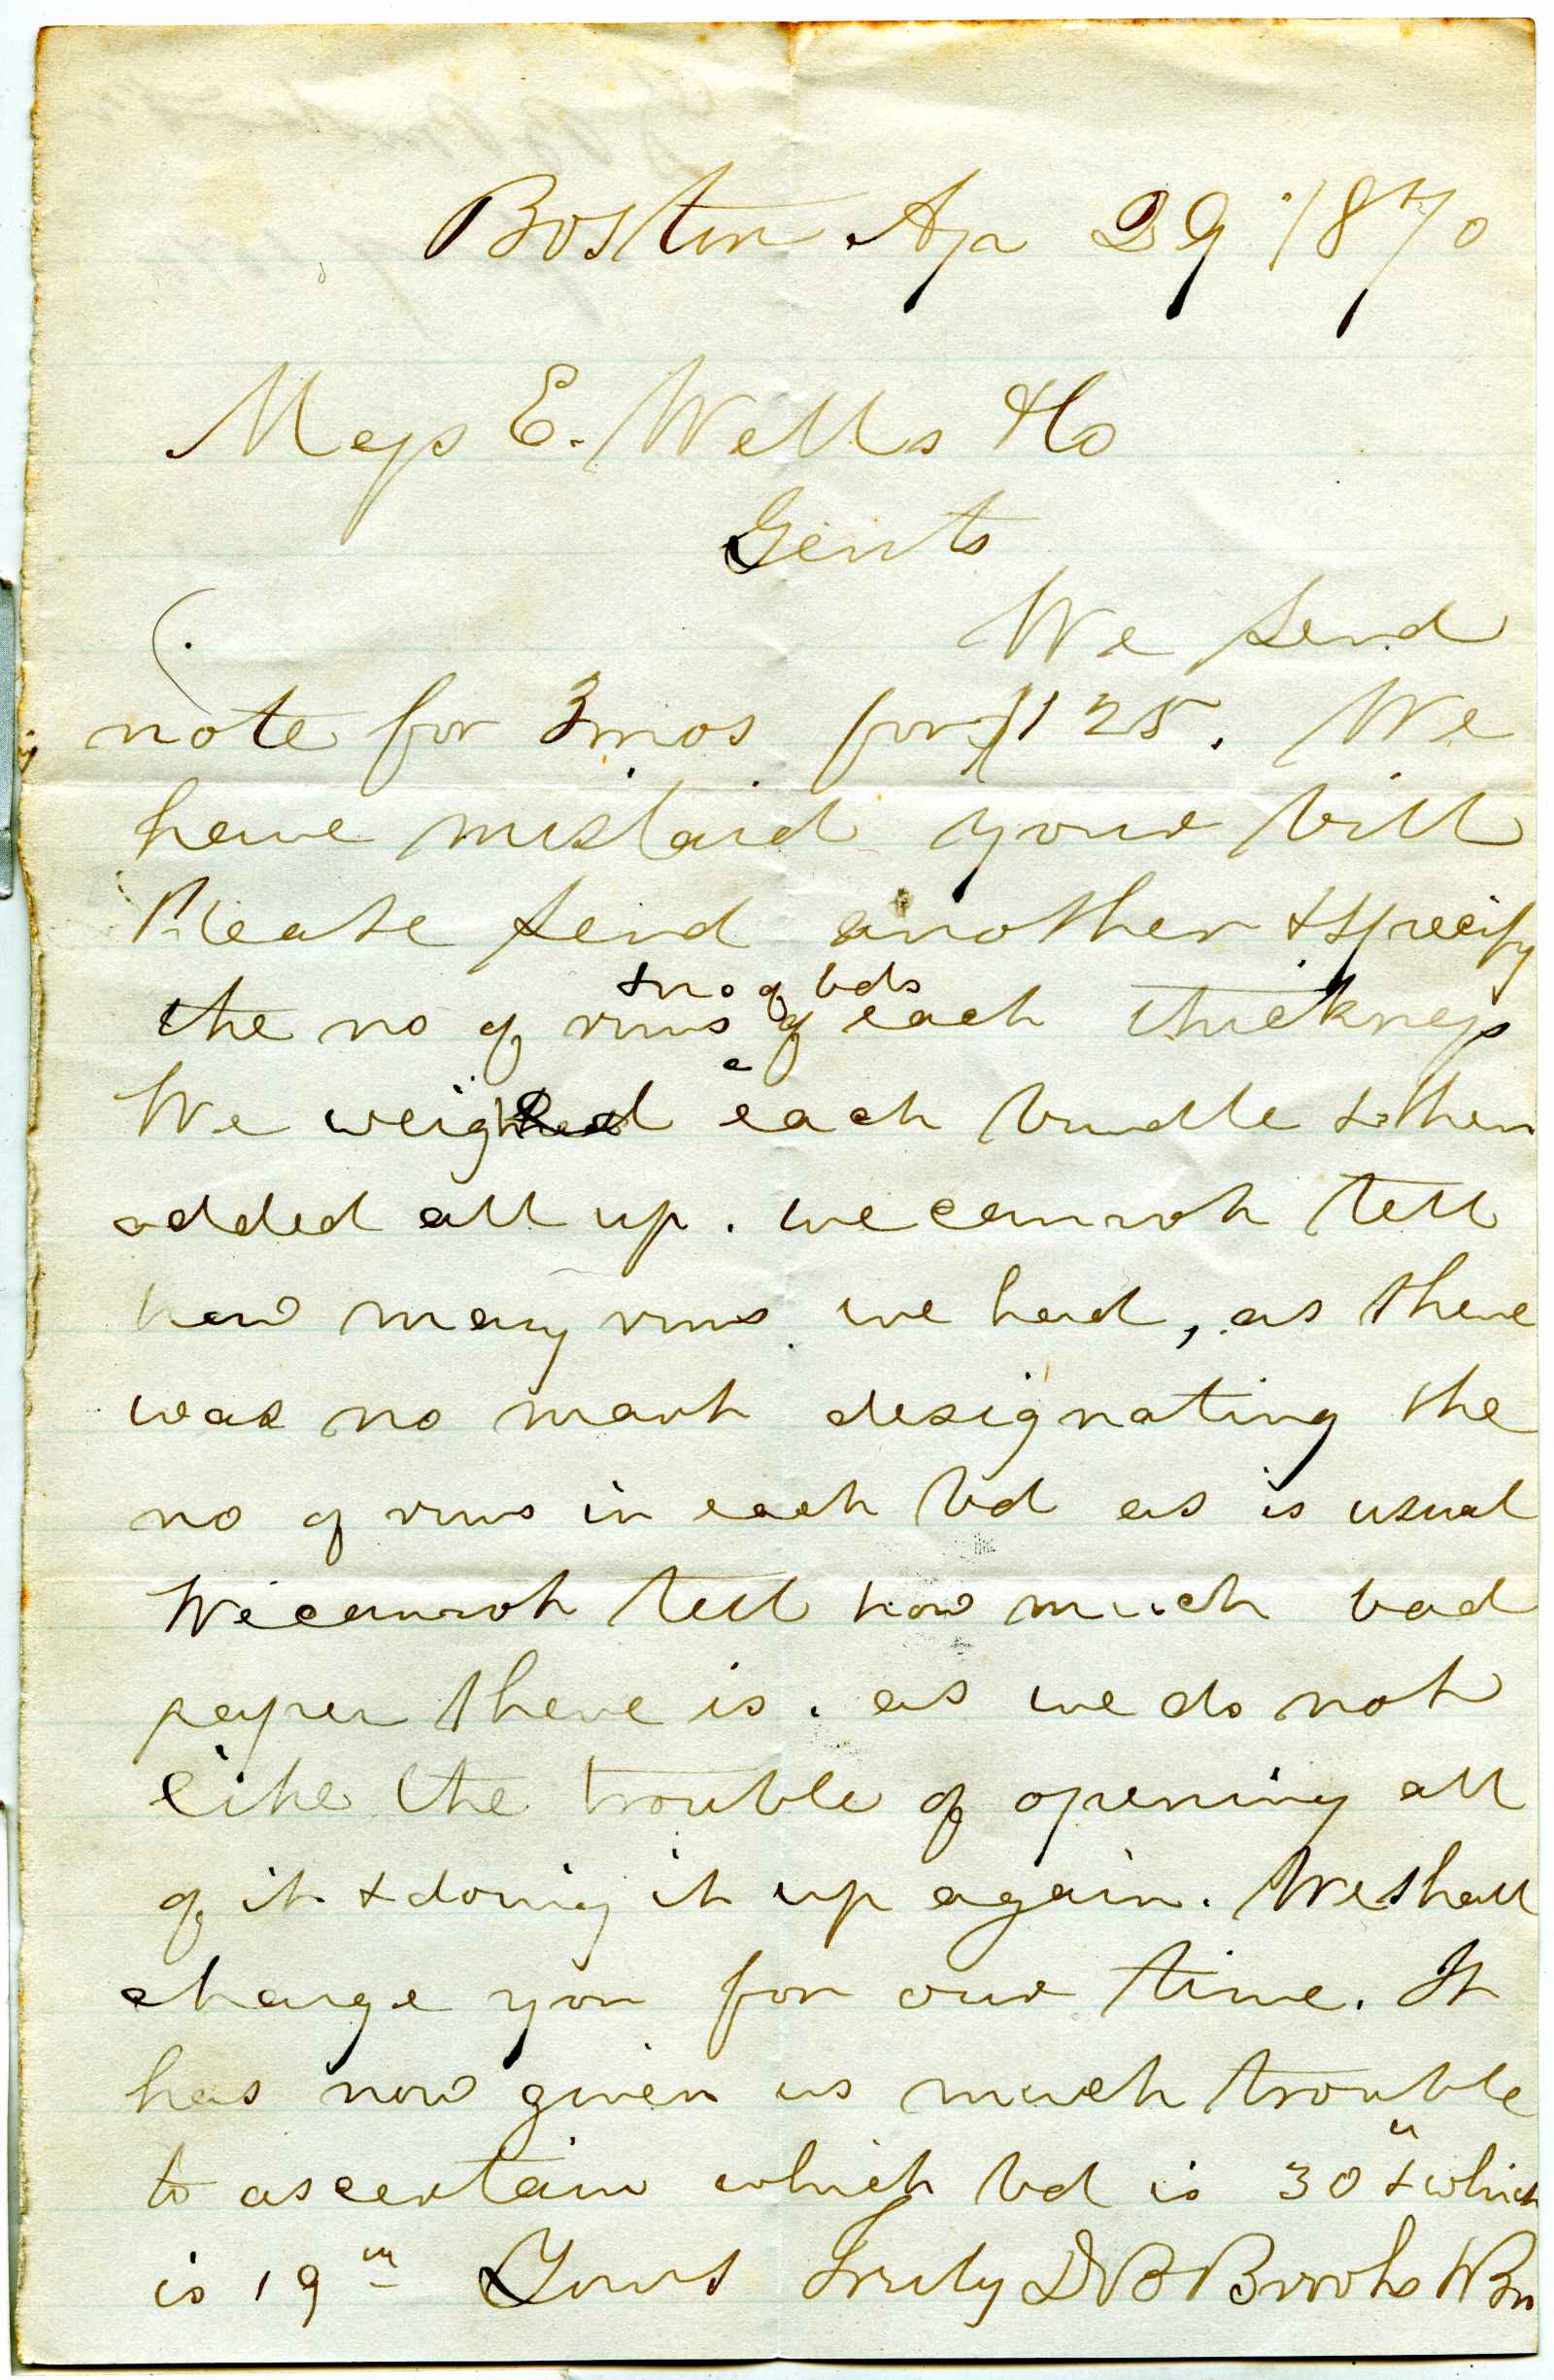 Boston Apr 29 1870
Mess E. Wells & Co
Gents
We send
note for 3 mos for $125. We
have mislaid your bill
Please send another & specify
& no of bds
the no of rms of each thickness
We weighed each bundle & then
added all up. we cannot tell
how many rms we had, as there
was no mark designating the
no of rms in each bd as is usual
We cannot tell how much bad
paper there is. as we do not
like the trouble of opening all
of it & doing it up again. We shall
charge you for our time. It
has now given us much trouble
to ascertain which bd is 30 & which
is 19 Yours Truly D B Brooks & Bro